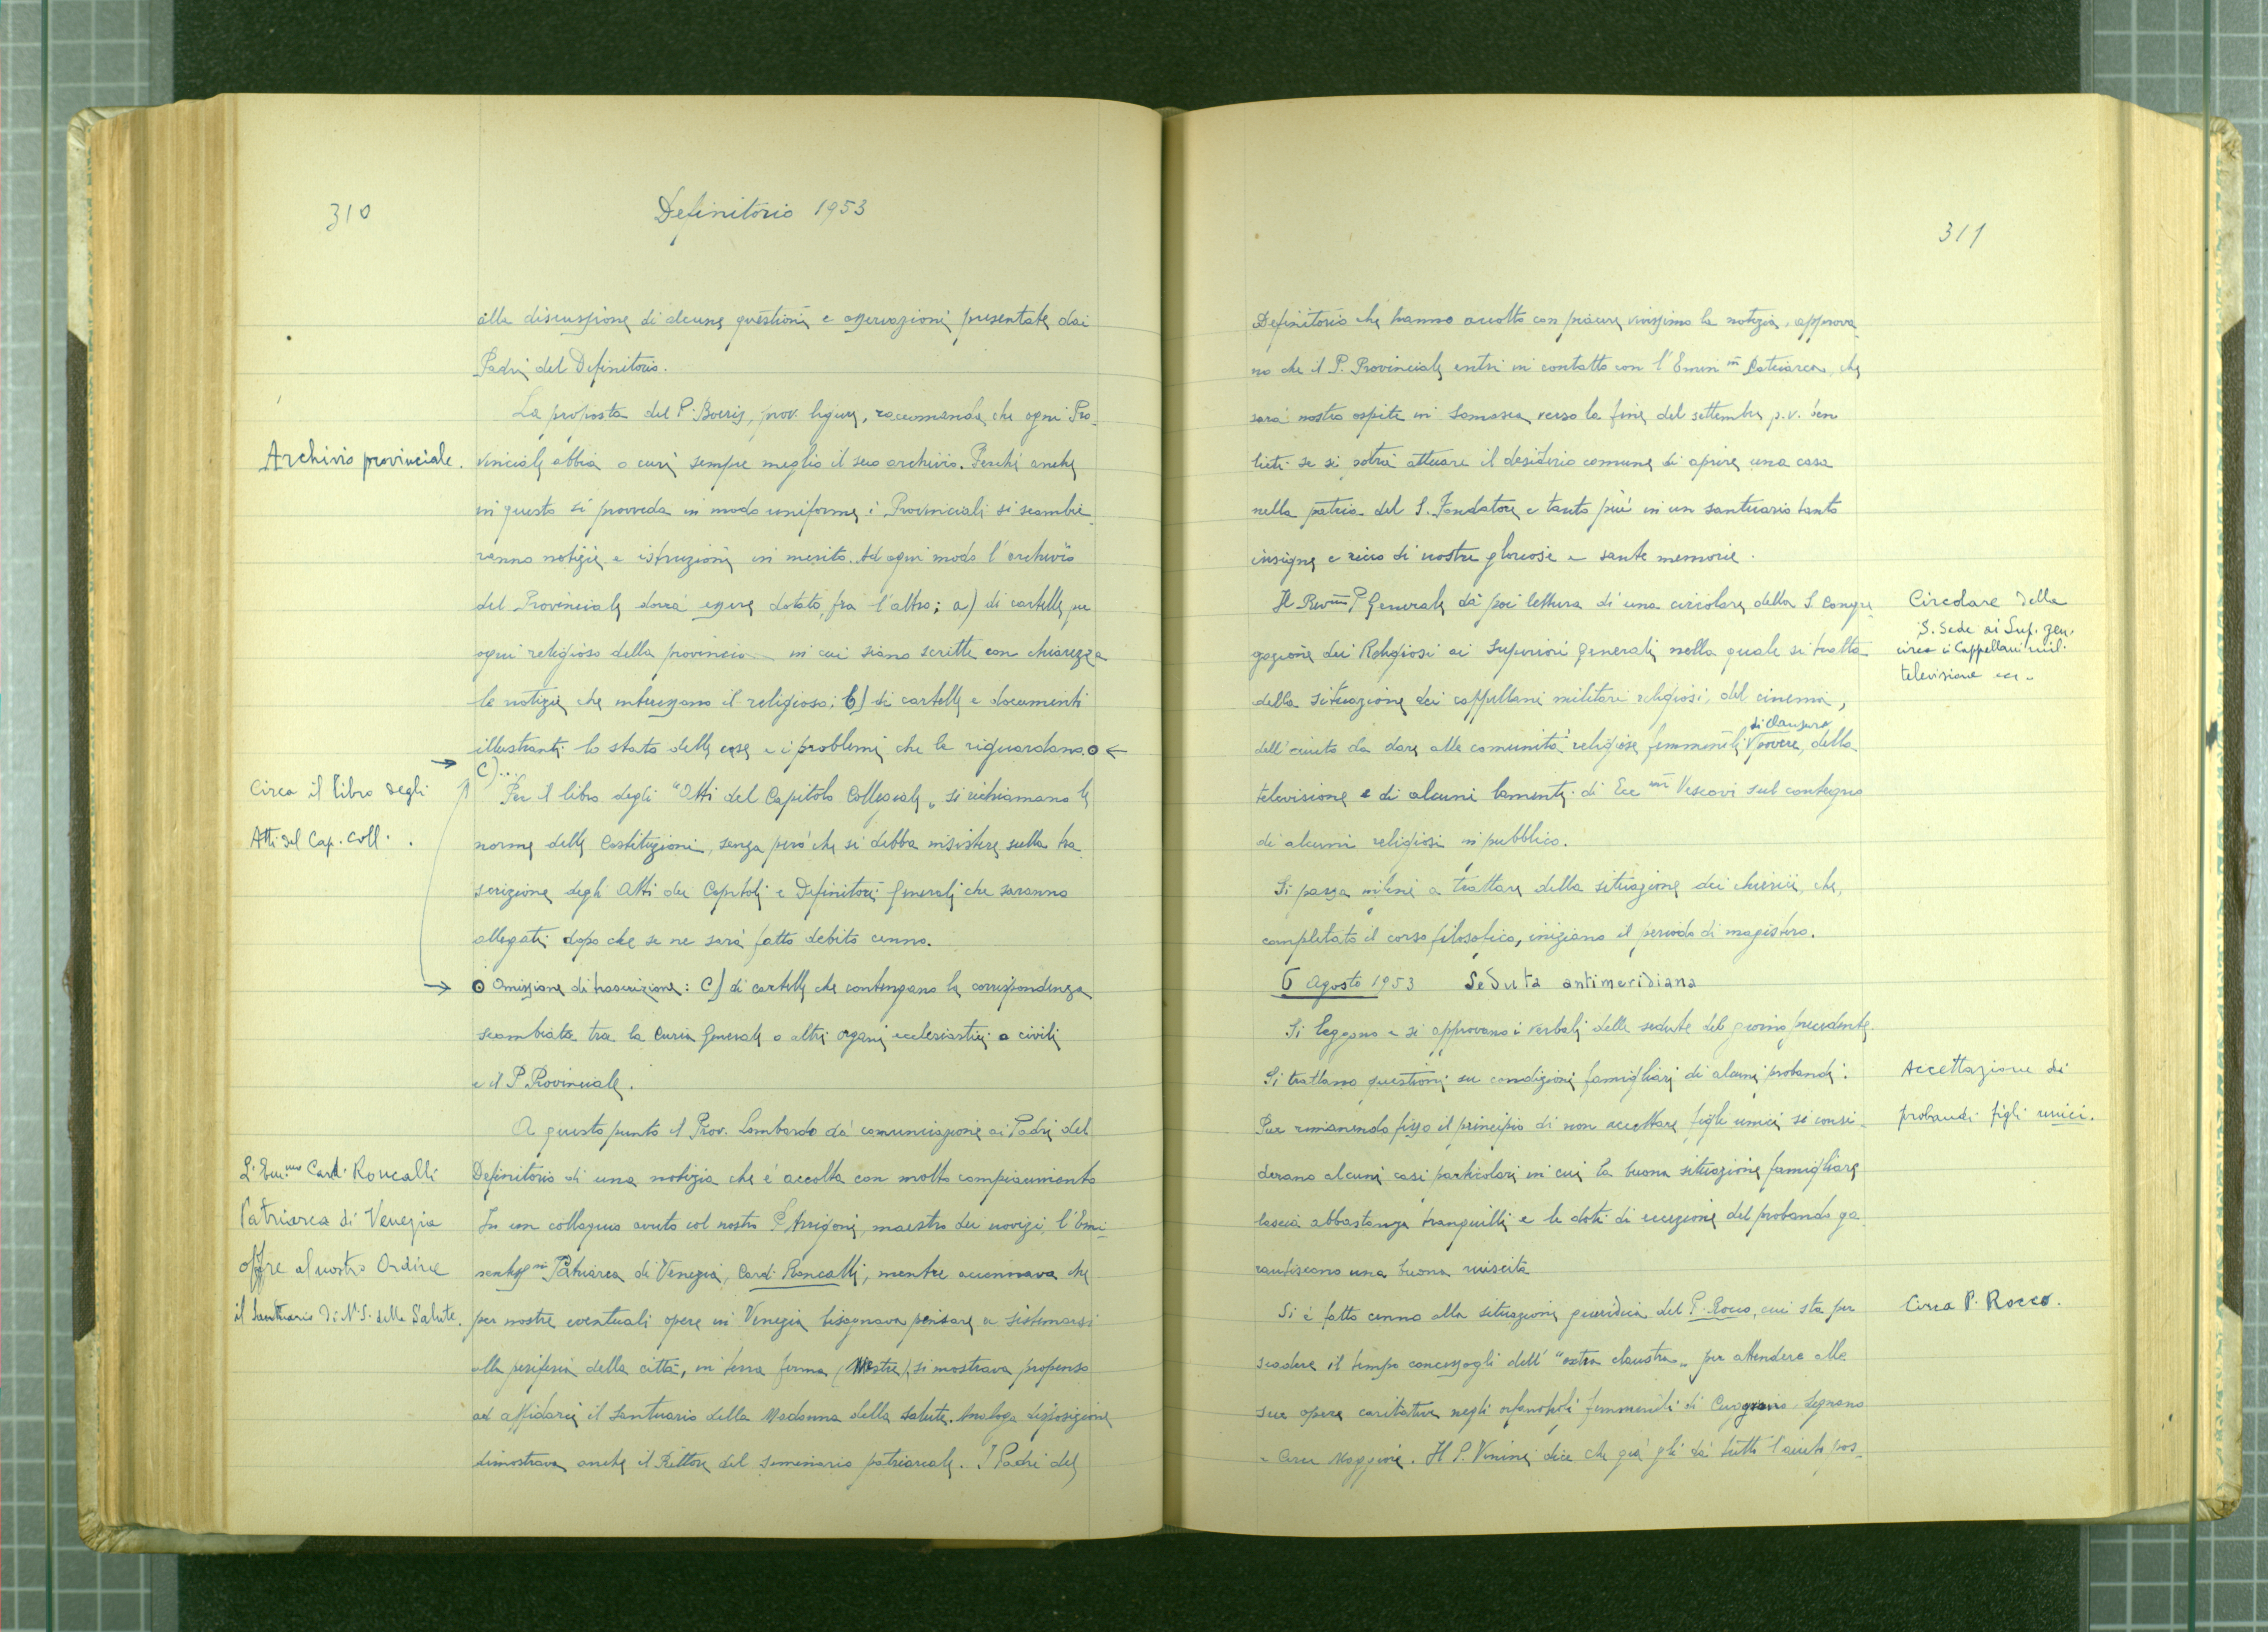 310
Definitorio 1953
alla discussione di alcune questioni e osservazioni presentate dai
Padri del Definitorio.
La proposta del P. Boeris, prov. ligure, raccomanda che ogni Pro-
Archivio provinciale.
vinciale abbia o curi sempre meglio il suo archivio. Perché anche
in questo si proveda in modo uniforme i Provinciali si scambie-
ranno notizie e istruzioni in merito. Ad ogni modo l'archivio
del Provinciale dovrà essere dotato, fra l'altro; a) di cartelle per
ogni religioso della provincia in cui siano scritte con chiarezza
le notizie che interessano il religioso; b) di cartelle e documenti
illustranti lo stato delle case e i problemi che le riguardano. ⊙ ←
→ c)...
Circa il libro degli
Atti del Cap. Coll.
Per il libro degli "Atti del Capitolo Collegiale" si richiamano le
norme delle Costituzioni, senza però che si debba insistere sulla tra-
scrizione degli Atti dei Capitoli e Definitori Generali che saranno
allegati dopo che se ne sarà fatto debito cenno.
→ ⊙ Omissione di trascrizione: C) di cartelle che contengano la corrispondenza
scambiata tra la Curia Generale o altri organi ecclesiastici o civili
e il P. Provinciale.
A questo punto il Prov. Lombardo dà comunicazione ai Padri del
L'Em.mo Card. Roncalli
Patriarca di Venezia
offre al nostro Ordine
il Santuario di N.S. della Salute.
Definitorio di una notizia che è accolta con molto compiacimento
In un colloquio avuto col nostro P. Arrigoni, maestro dei novizi, l'Emi-
nentiss.mo Patriarca di Venezia, Card. Roncalli, mentre accennava che
per nostre eventuali opere in Venezia bisognava pensare a sistemarsi
alla periferia della città, in terra ferma (Mestre), si mostrava propenso
ad affidarci il Santuario della Madonna della Salute. Analoga disposizione
dimostrava anche il Rettore del seminario patriarcale. I Padri del
311
Definitorio che hanno accolto con piacere vivissimo la notizia, approva-
no che il P. Provinciale entri in contatto con l'Emin.mo Patriarca, che
sarà nostro ospite in Somasca verso la fine del settembre p.v. ben
lieti se si potrà attuare il desiderio comune di aprire una casa
nella patria del S. Fondatore e tanto più in un santuario tanto
insigne e ricco di nostre gloriose e sante memorie.
Il Rev.mo P. Generale dà poi lettura di una circolare della S. Congre-
Circolare della
S. Sede ai Sup. gen.
circa i Cappellani mil.
televisione ecc..
gazione dei Religiosi ai Superiori Generali nella quale si tratta
della situazione dei cappellani militari religiosi, del cinema,
dell'aiuto da dare alle comunità religiose femminili di clausura povere, della
televisione e di alcuni lamenti di Ecc.mi Vescovi sul contegno
di alcuni religiosi in pubblico.
Si passa infine a trattare della situazione dei chierici, che,
completato il corso filosofico, iniziano il periodo di magistero.
6 Agosto 1953 Seduta antimeridiana
Si leggono e si approvano i verbali delle sedute del giorno precedente.
Si trattano questioni su condizioni famigliari di alcuni probandi.
Accettazione di
probandi figli unici.
Pur rimanendo fisso il principio di non accettare figli unici si consi-
derano alcuni casi particolari in cui la buona situazione famigliare
lascia abbastanza tranquilli e le doti di eccezione del probando ga-
rantiscono una buona riuscita
Si è fatto cenno alla situazione giuridica del P. Rocco, cui sta per
Circa P. Rocco.
scadere il tempo concessogli dell'"extra claustra" per attendere alle
sue opere caritative negli orfanotrofi femminili di Legnano
e Arcu Maggiore. Il P. Venini dice che già gli dà tutto l'aiuto pos-